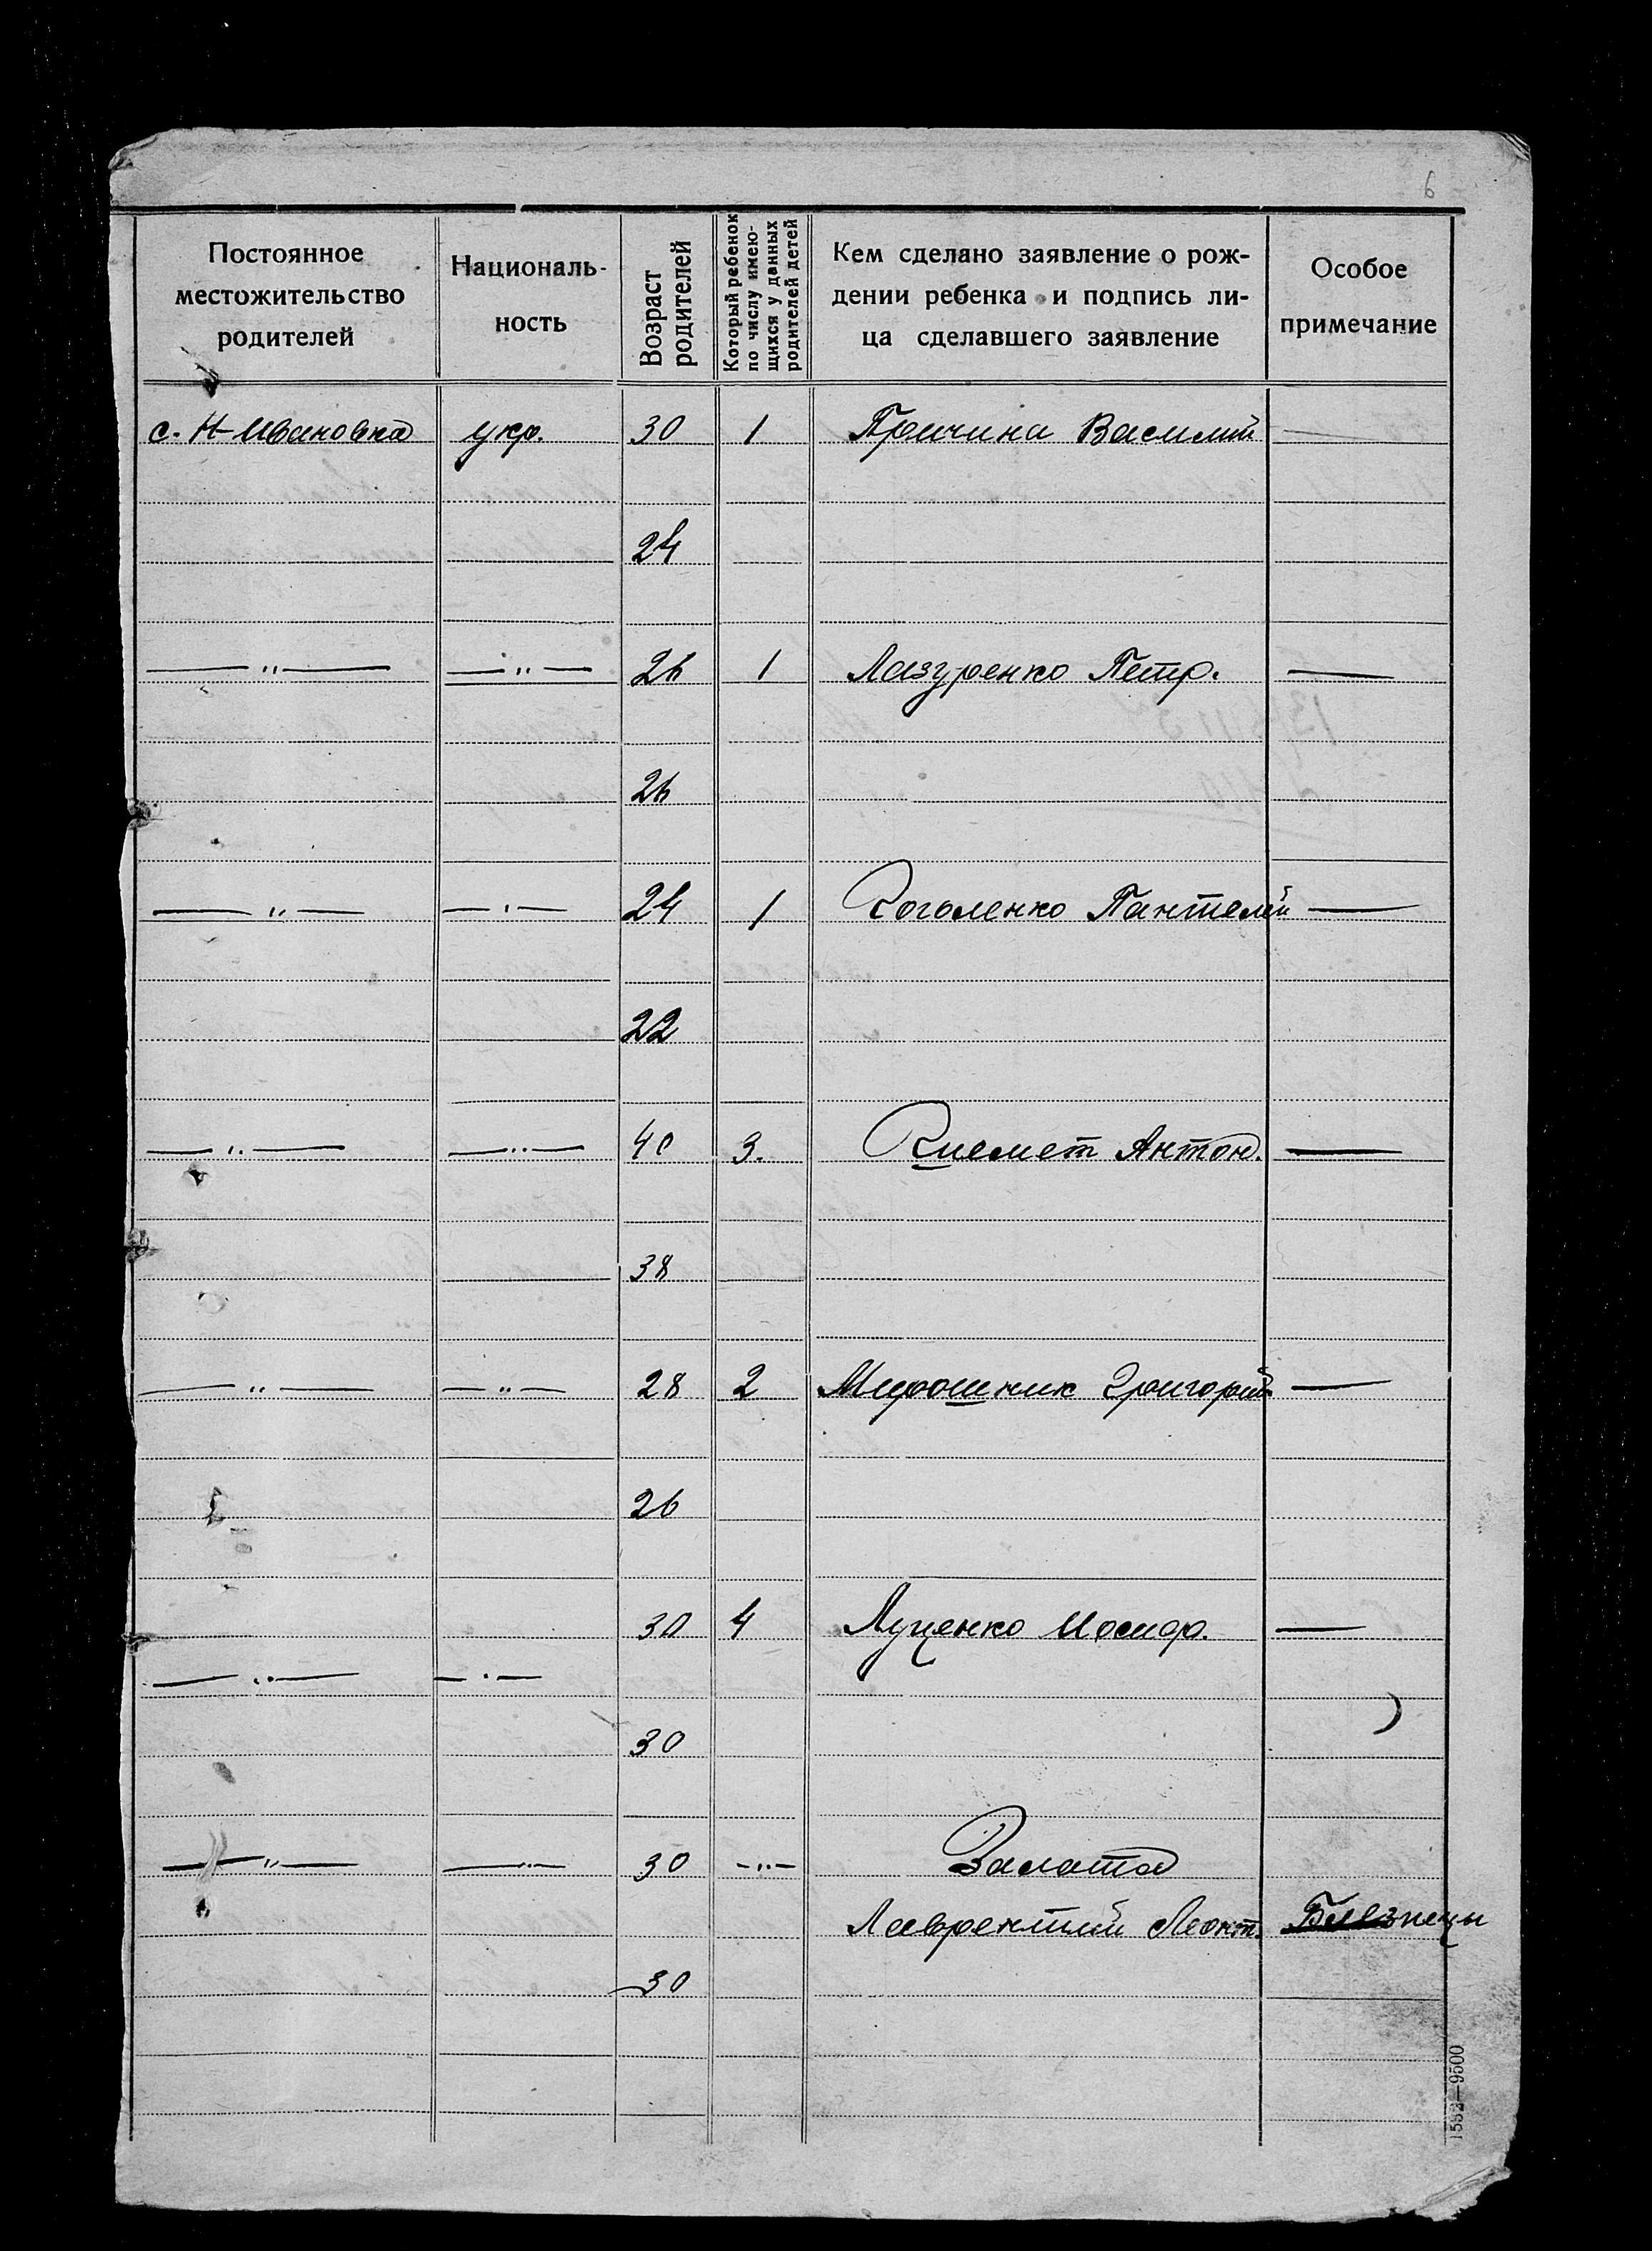 6
Постоянное местожительство родителей
Националь-ность
Возраст родителей
Который ребенок по числу имею-щихся у данных родителей детей
Кем сделано заявление о рож-дении ребенка и подпись ли-ца сделавшего заявление
Особое примечание
с. Н-Ивановка укр. 30 1 Причина Василий —
24
— " — — " — 26 1 Лазуренко Петр. —
26
— " — — " — 24 1 Коголенко Пантелей —
22
— " — — " — 40 3. Антон. —
38
— " — — " — 28 2 Мирошник Григорий —
26
30 4 Луценко Иосиф. —
— " — — " —
30
— " — — " — 30 — " — Залата
Лаврентий Леонт. Близнецы
30
9500